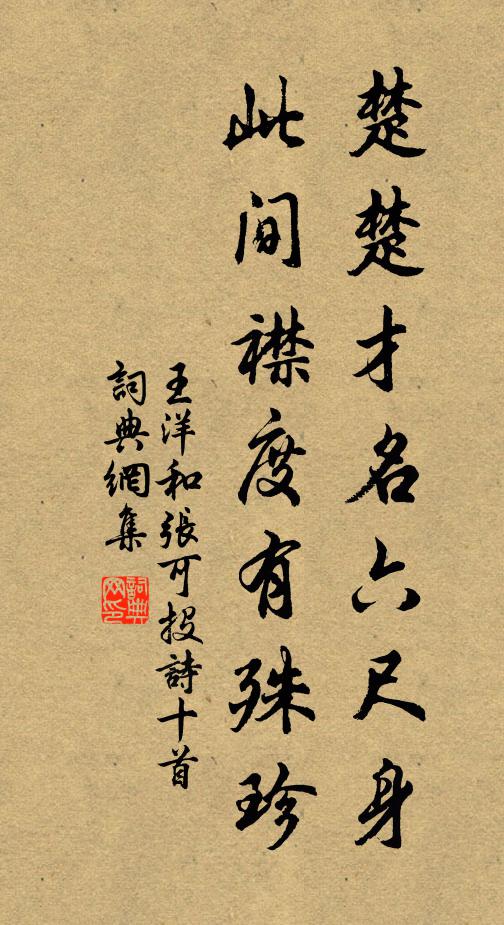 楚楚才名六尺身
此间襟度有殊珍
王洋和張可投詩十首
詞典網集
詞典网印